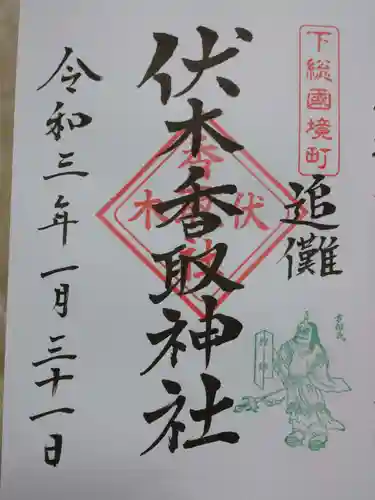 下総國境町
追儺
伏木香取神社
令和三年一月三十一日
伏木
香取
社